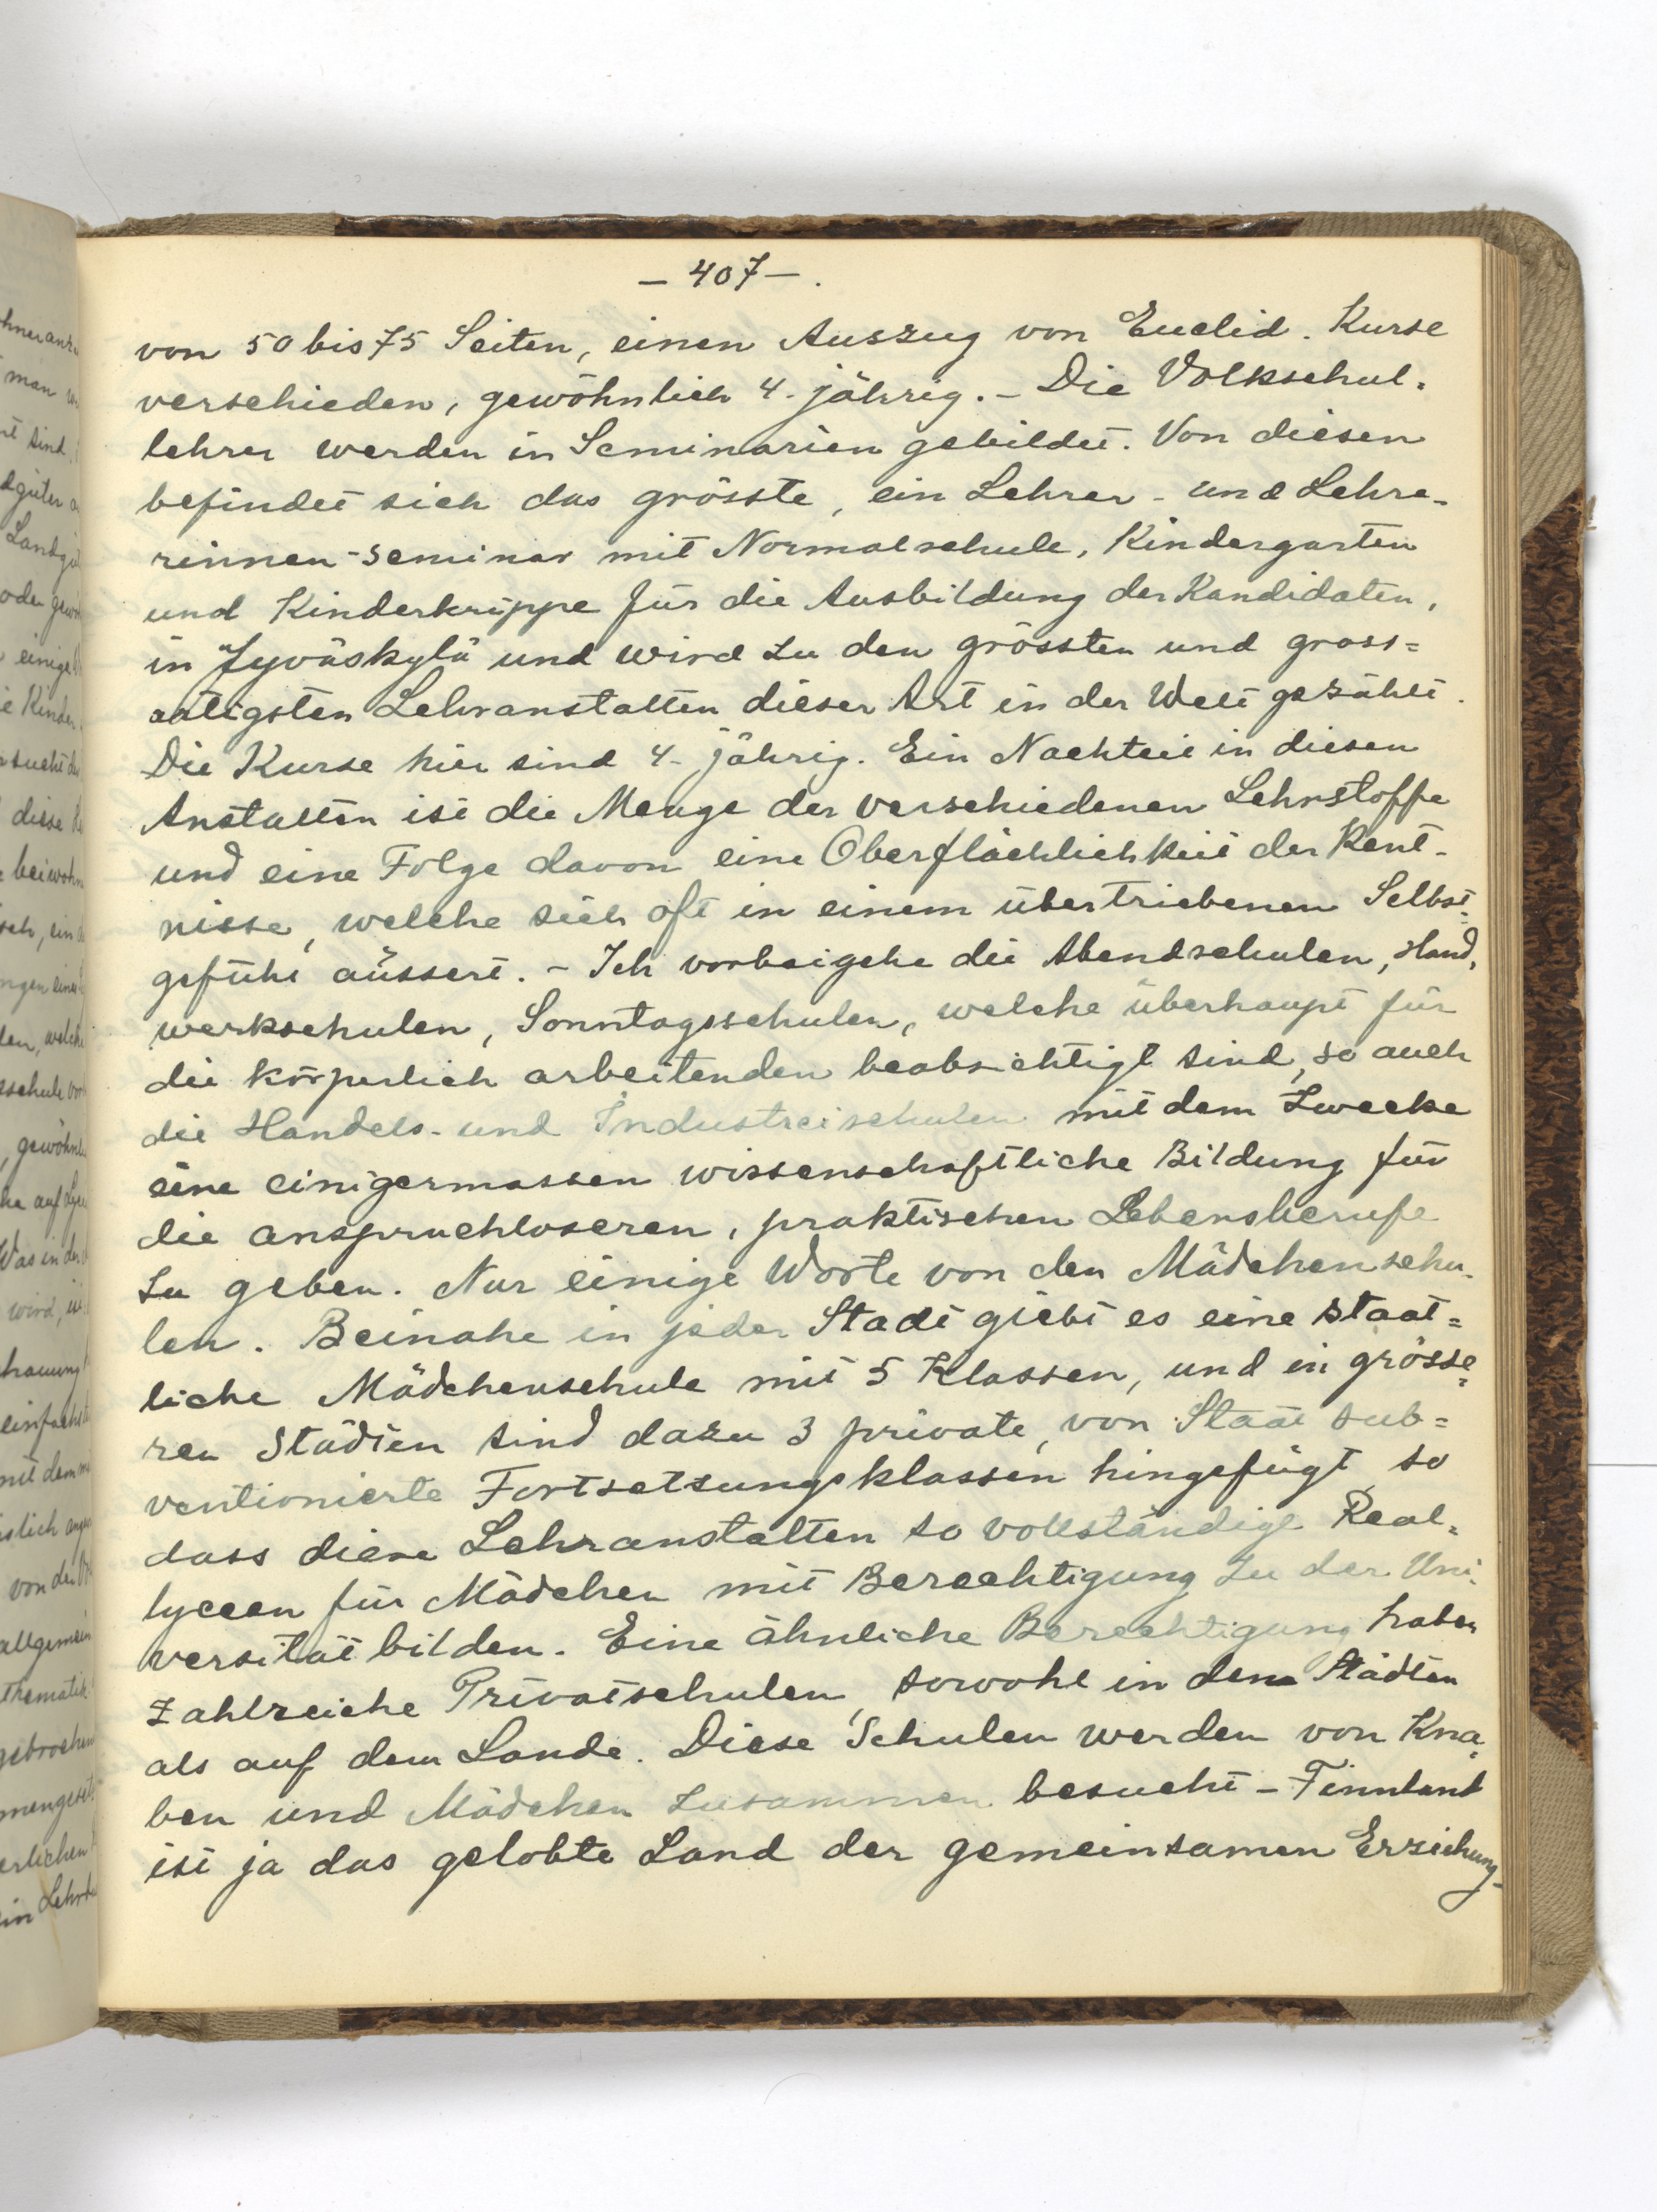 — 407 — .
von 50 bis 75 Seiten, einen Auszug von Euclid. Kurse
verschieden, gewöhnlich 4-jährig. – Die Volkschul-
lehrer werden in Seminarien gebildet. Von diesen
befindet sich das grösste, ein Lehrer- und Lehre-
rinnen-seminar mit Normalschule, Kindergarten
und Kinderkrippe für die Ausbildung der Kandidaten,
in Jyväskylä und wird zu den grössten und gross=
artigsten Lehranstalten dieser Art in der Welt gezählt.
Die Kurse hier sind 4-jährig. Ein Nachteil in diesen
Anstalten ist die Menge der verschiedenen Lehrstoffe
und eine Folge davon eine Oberflächlichkeit der Kent-
nisse, welche sich oft in einem übertriebenen Selbst=
gefühl äussert. – Ich vorbeigehe die Abendschulen, Hand-
werkschulen, Sonntagsschulen, welche überhaupt für
die körperlich arbeitenden beabsichtigt sind, so auch
die Handels- und Industreischulen mit dem Zwecke
eine einigermassen wissenschaftliche Bildung für
die anspruchloseren, praktischen Lebensberufe
zu geben. Nur einige Worte von den Mädchenschu-
len. Beinahe in jeder Stadt giebt es eine staat=
liche Mädchenschule mit 5 Klassen, und in grösse=
ren Städten sind dazu 3 private, von Staat sub=
ventionierte Fortsetsungsklassen hingefügt, so
dass diese Lehranstalten so vollständige Real-
lyceen für Mädchen mit Berechtigung zu der Uni-
versität bilden. Eine ähnliche Berechtigung haben
zahlreiche Privatschulen, sowohl in den Städten
als auf dem Lande. Diese Schulen werden von Kna-
ben und Mädchen zusammen besucht – Finnland
ist ja das gelobte Land der gemeinsamen Erziehung-